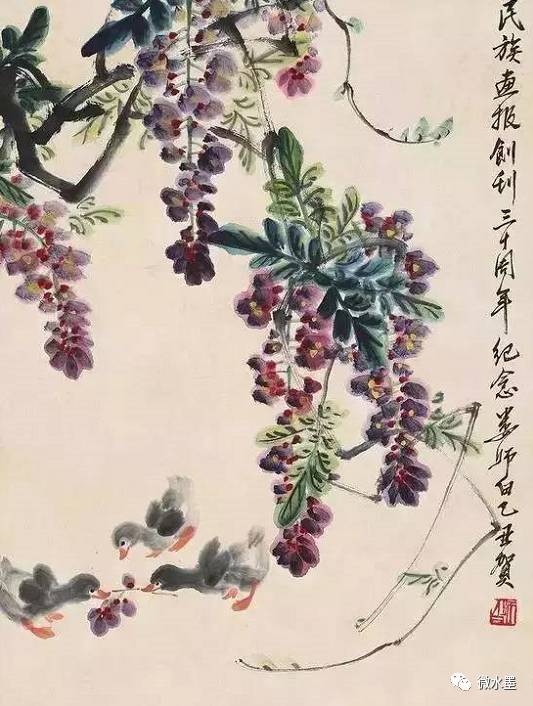 民族画报創刊三十周年纪念娄师白乙丑贺
微水墨